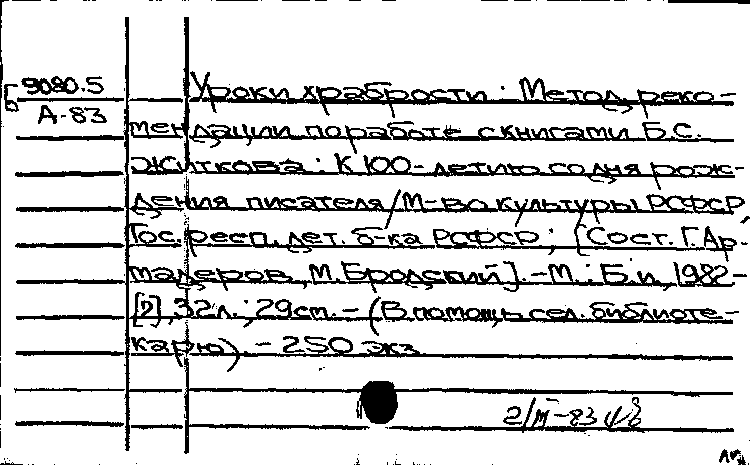 Б 9080.5
А-83
Уроки храбрости : Метод. реко-
мендации по работе с книгами Б.С.
Житкова : К 100-летию со дня рож-
дения писателя / М-во культуры РСФСР,
Гос. респ. дет. б-ка РСФСР ; [Сост. Г. Ар-
мадеров, М. Бродский]. - М. : Б. и., 1982-
[?], 32 л. ; 29 см. - (В помощь сел. библиоте-
карю). - 250 экз.
2/III-83